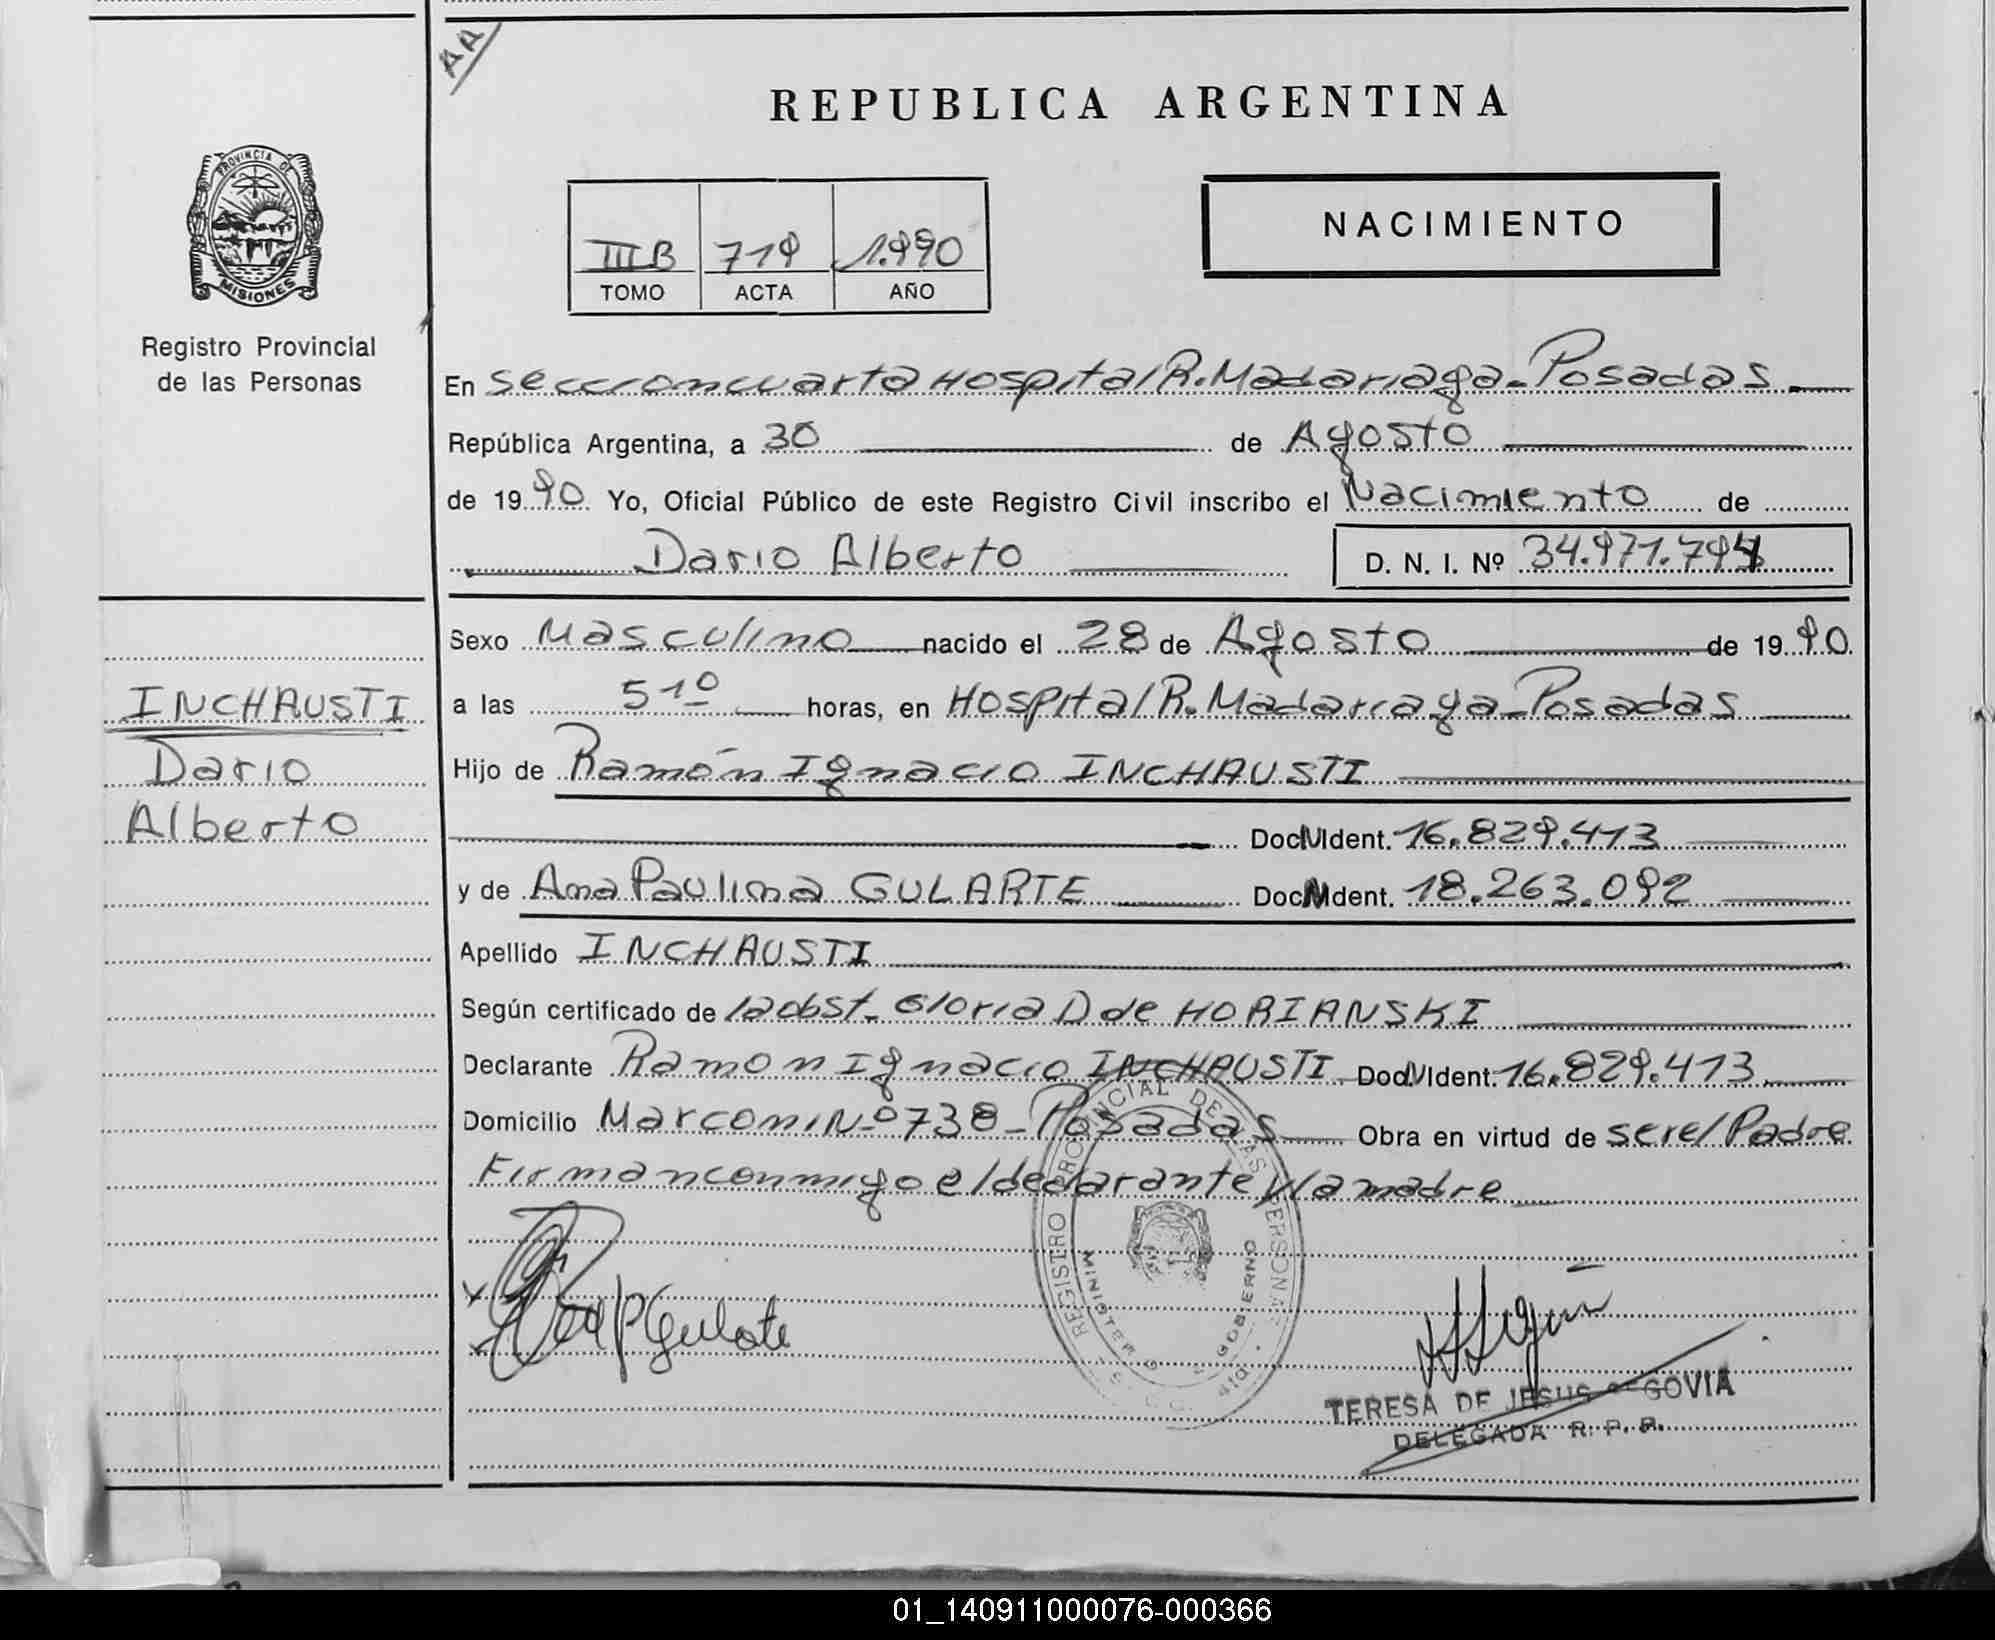 AA
REPUBLICA ARGENTINA
PROVINCIA DE
MISIONES
Registro Provincial
de las Personas
III B 719 1.990
TOMO ACTA AÑO
NACIMIENTO
En seccioncuarta Hospital R. Madariaga - Posadas
República Argentina, a 30 de Agosto
de 1990 Yo, Oficial Público de este Registro Civil inscribo el Nacimiento de
Dario Alberto D. N. I. Nº 34.971.794
Sexo Masculino nacido el 28 de Agosto de 1990
a las 5 10 horas, en Hospital R. Madariaga - Posadas
Hijo de Ramón Ignacio INCHAUSTI
Doc. Ident. 16.829.413
y de Ana Paulina GULARTE Doc. Ident. 18.263.092
Apellido INCHAUSTI
Según certificado de la obst. Gloria D de HORIANSKI
Declarante Ramon Ignacio INCHAUSTI Doc. Ident. 16.829.413
Domicilio Marconi Nº 738 - Posadas Obra en virtud de ser el Padre
Firman conmigo el declarante y la madre
INCHAUSTI
Dario
Alberto
REGISTRO PROVINCIAL DE LAS PERSONAS
MINISTERIO GOBIERNO
P Gularte
TERESA DE JESUS SEGOVIA
DELEGADA R. P. P.
01_140911000076-000366